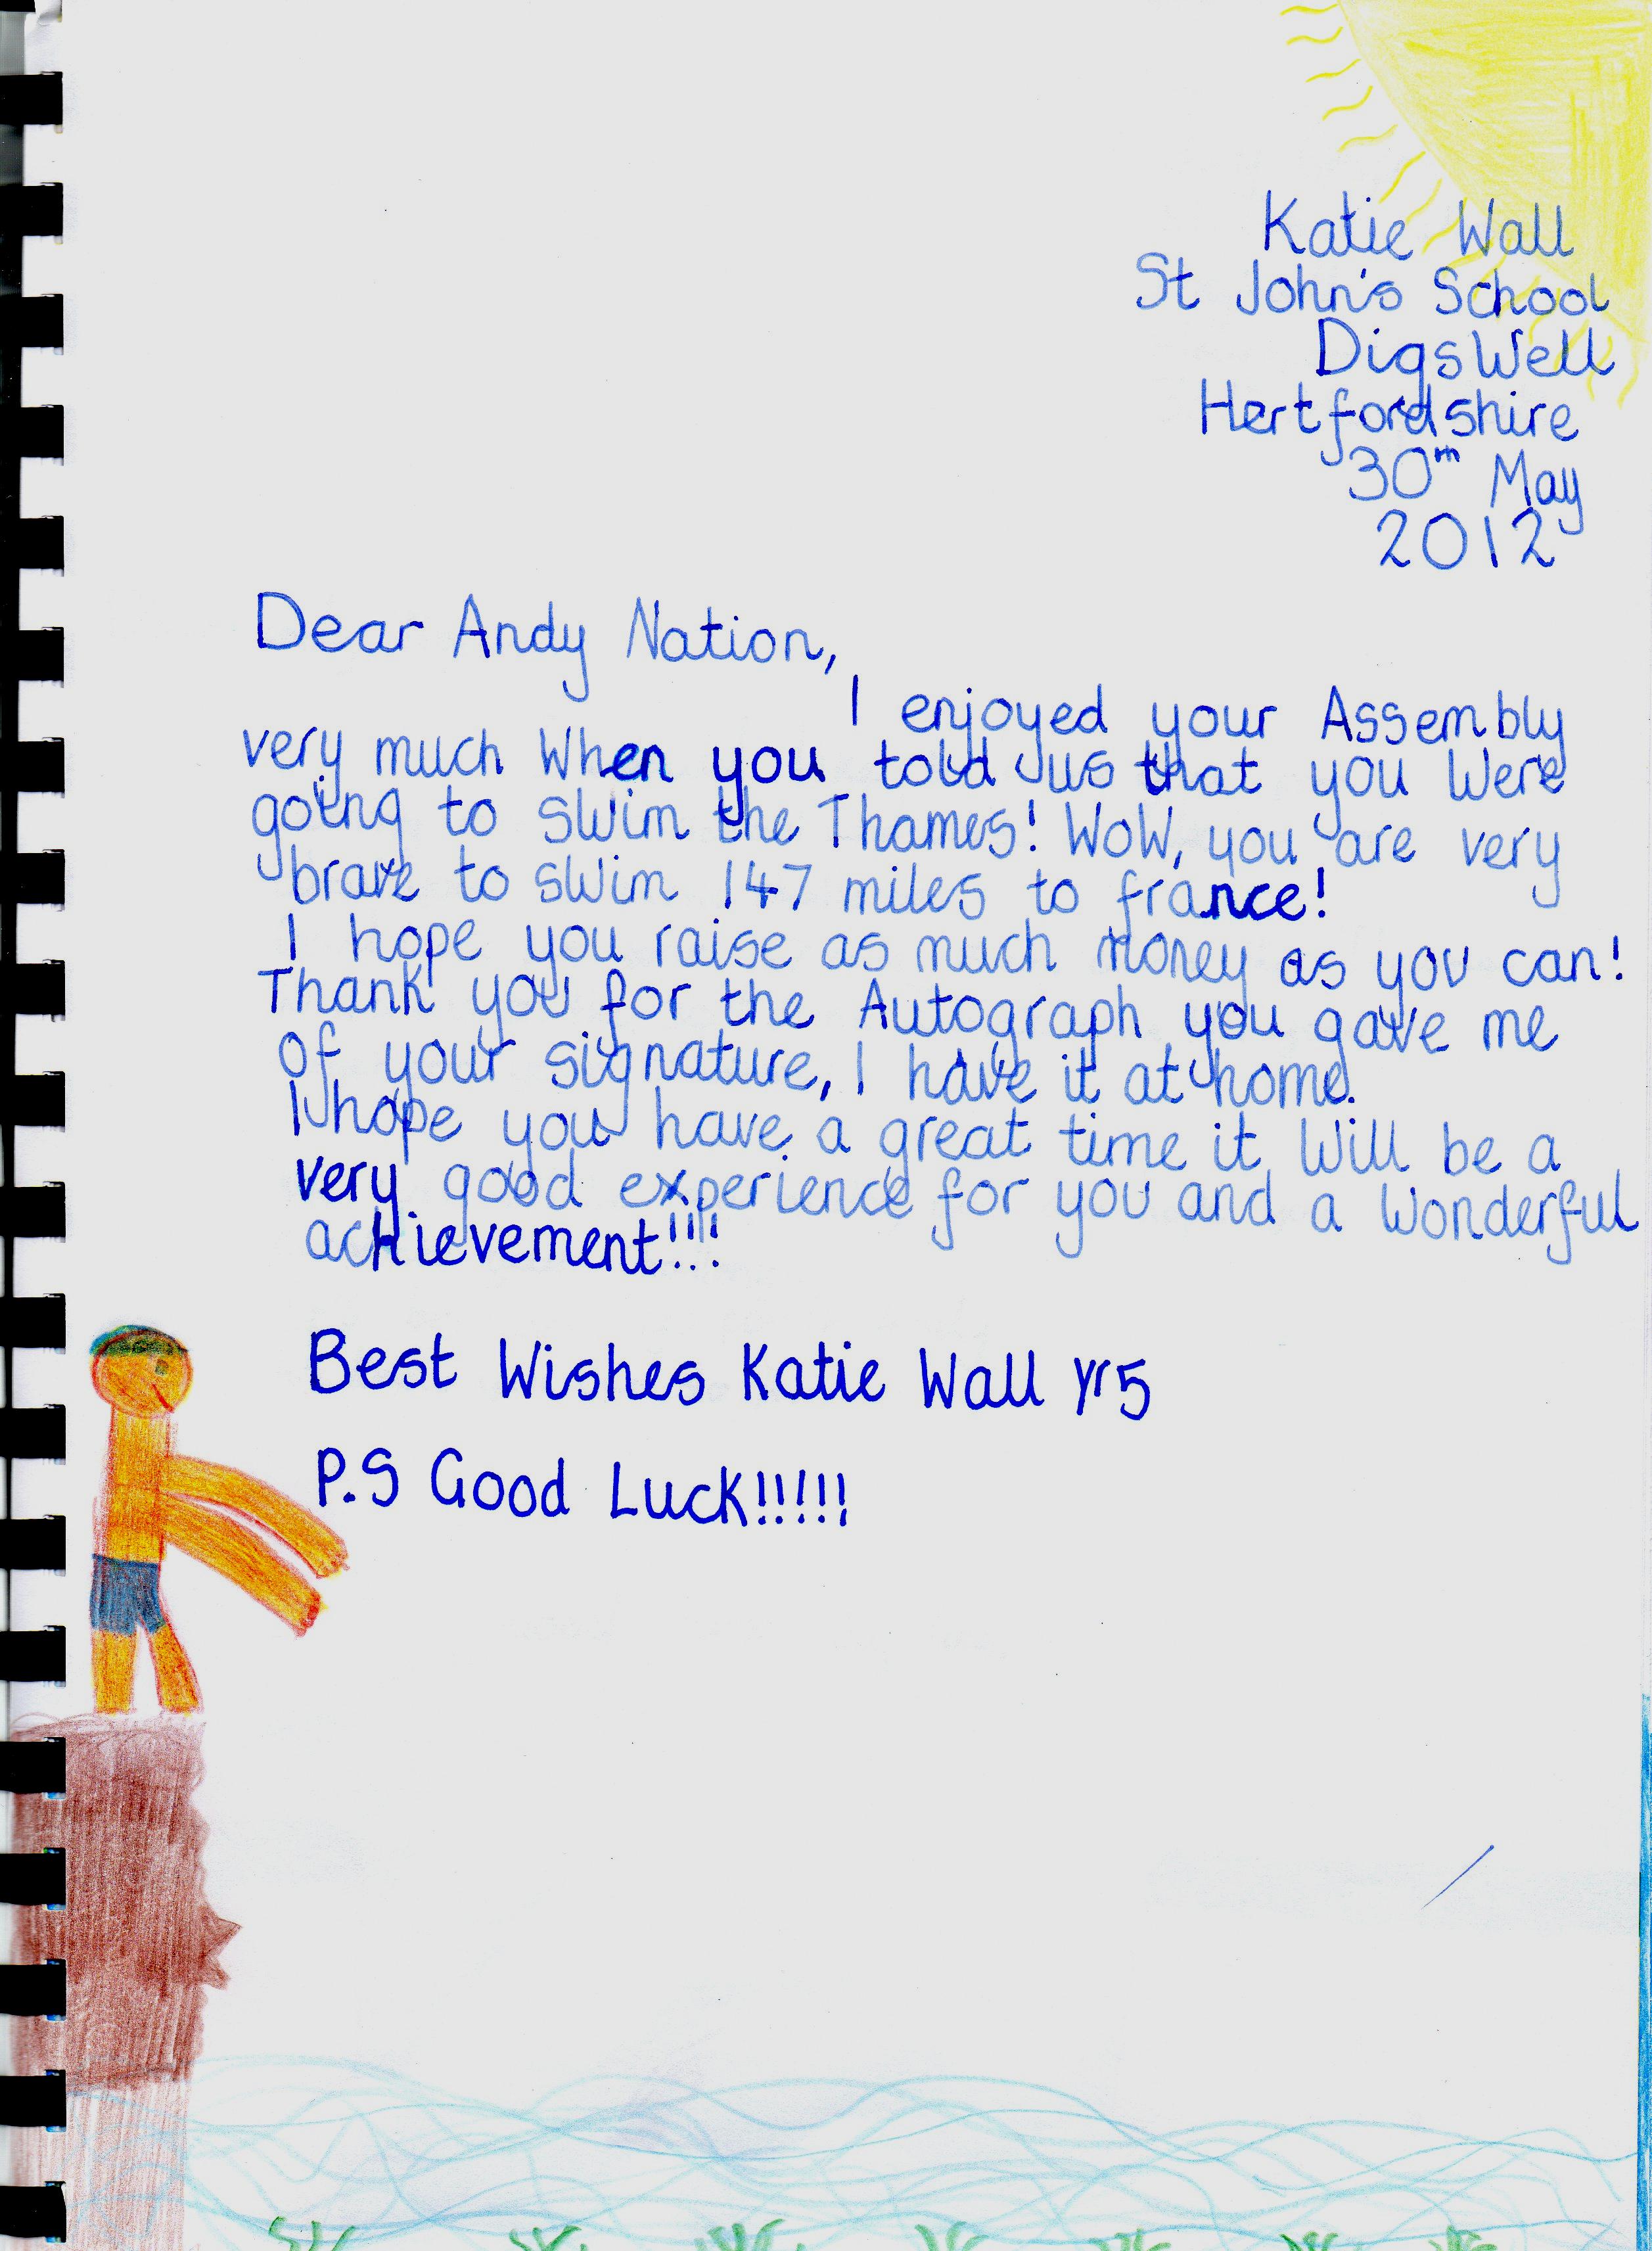 Katie Wall
St John's School
DigsWell
Hertfordshire
30th May
2012
Dear Andy Nation,
I enjoyed your Assembly
very much When you told us that you Were
going to swim the Thames! WoW, you are very
brave to swim 147 miles to france!
I hope you raise as much money as you can!
Thank you for the Autograph you gave me
of your signature, I have it at home.
I hope you have a great time it Will be a
very good experience for you and a Wonderful
achievement!!!
Best Wishes Katie Wall yr5
P.S Good Luck!!!!!